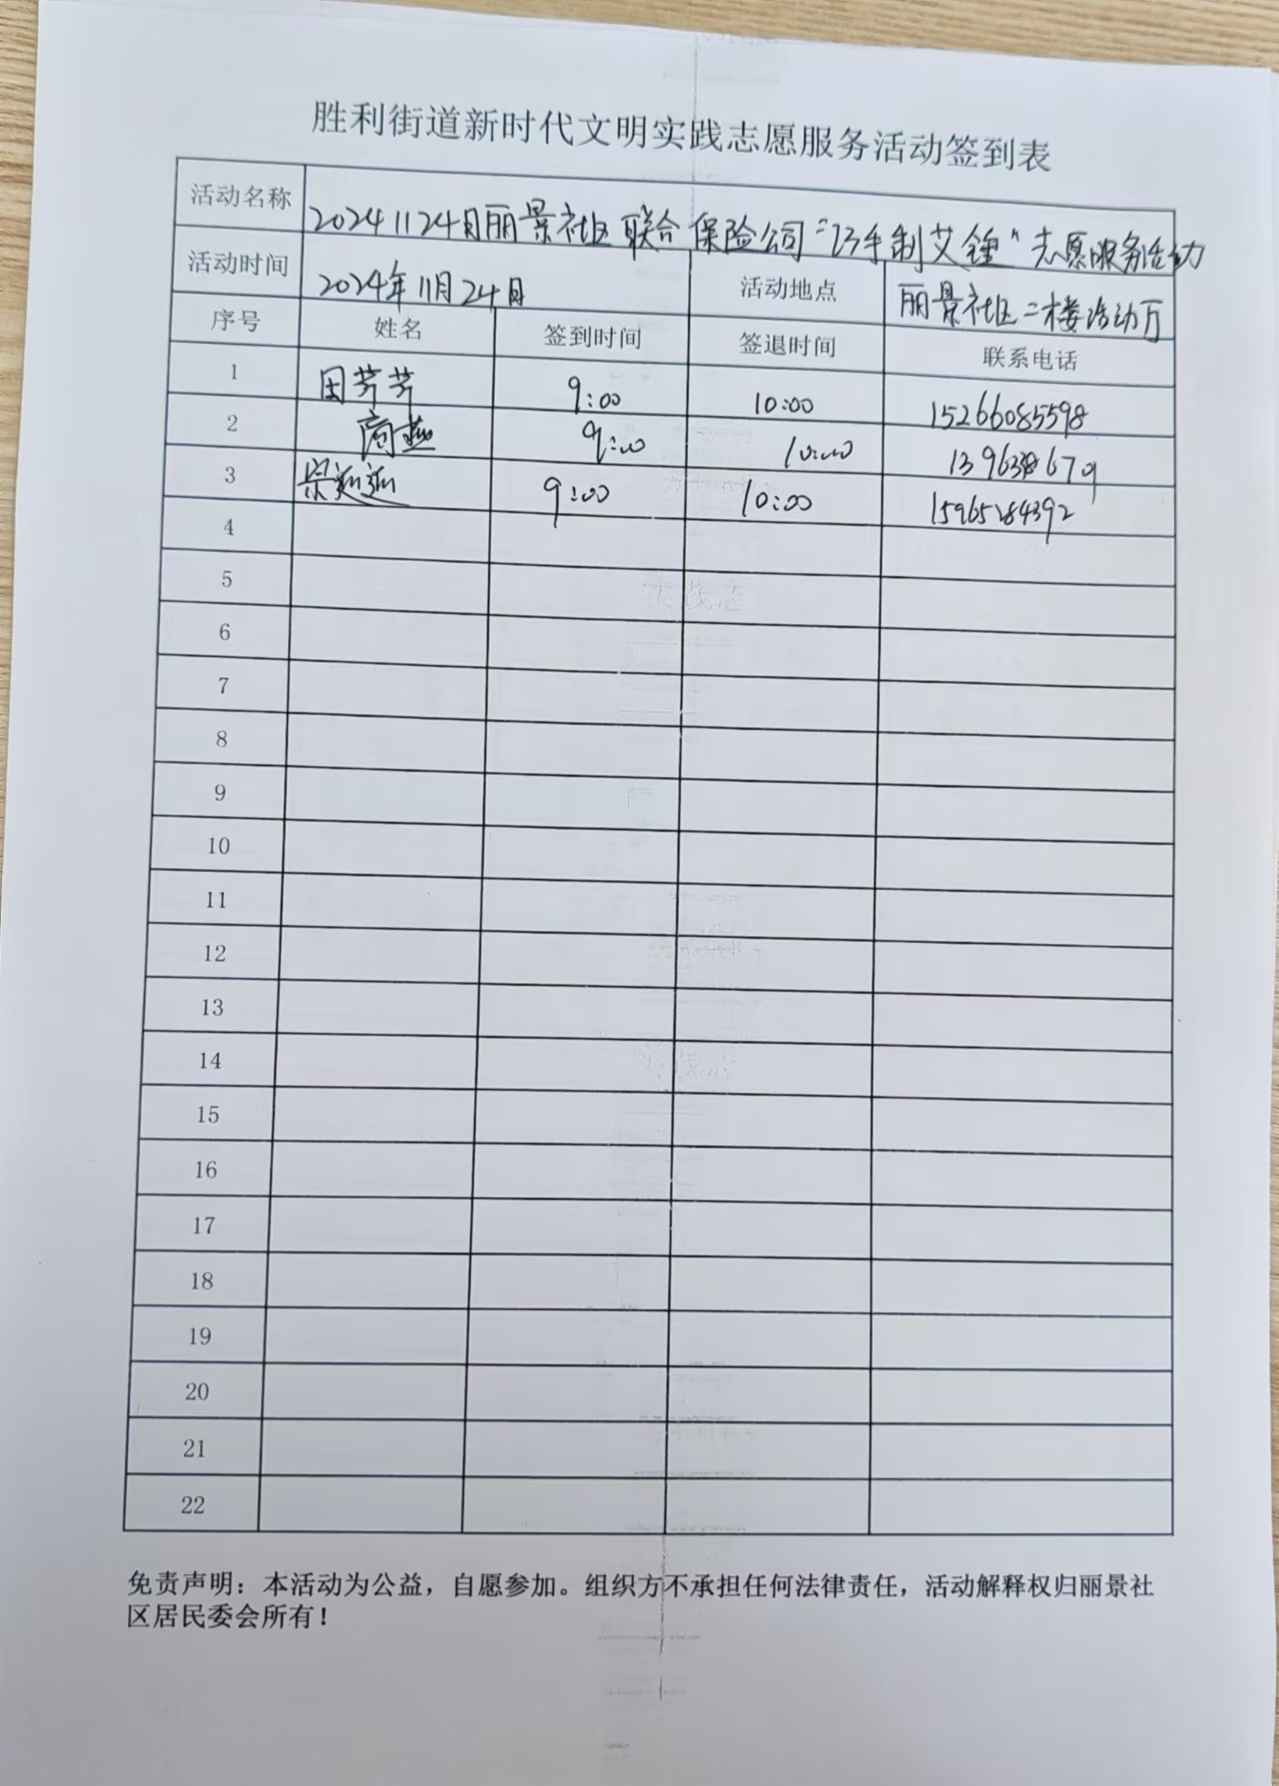 胜利街道新时代文明实践志愿服务活动签到表
活动名称 20241124日丽景社区联合保险公司“巧手制艾锤”志愿服务活动
活动时间 2024年11月24日 活动地点 丽景社区二楼活动
序号 姓名 签到时间 签退时间 联系电话
1 田芳芳 9:00 10:00 15266085598
2 商燕 9:00 10:00
3 9:00 10:00
4
5
6
7
8
9
10
11
12
13
14
15
16
17
18
19
20
21
22
免责声明：本活动为公益，自愿参加。组织方不承担任何法律责任，活动解释权归丽景社
区居民委会所有！